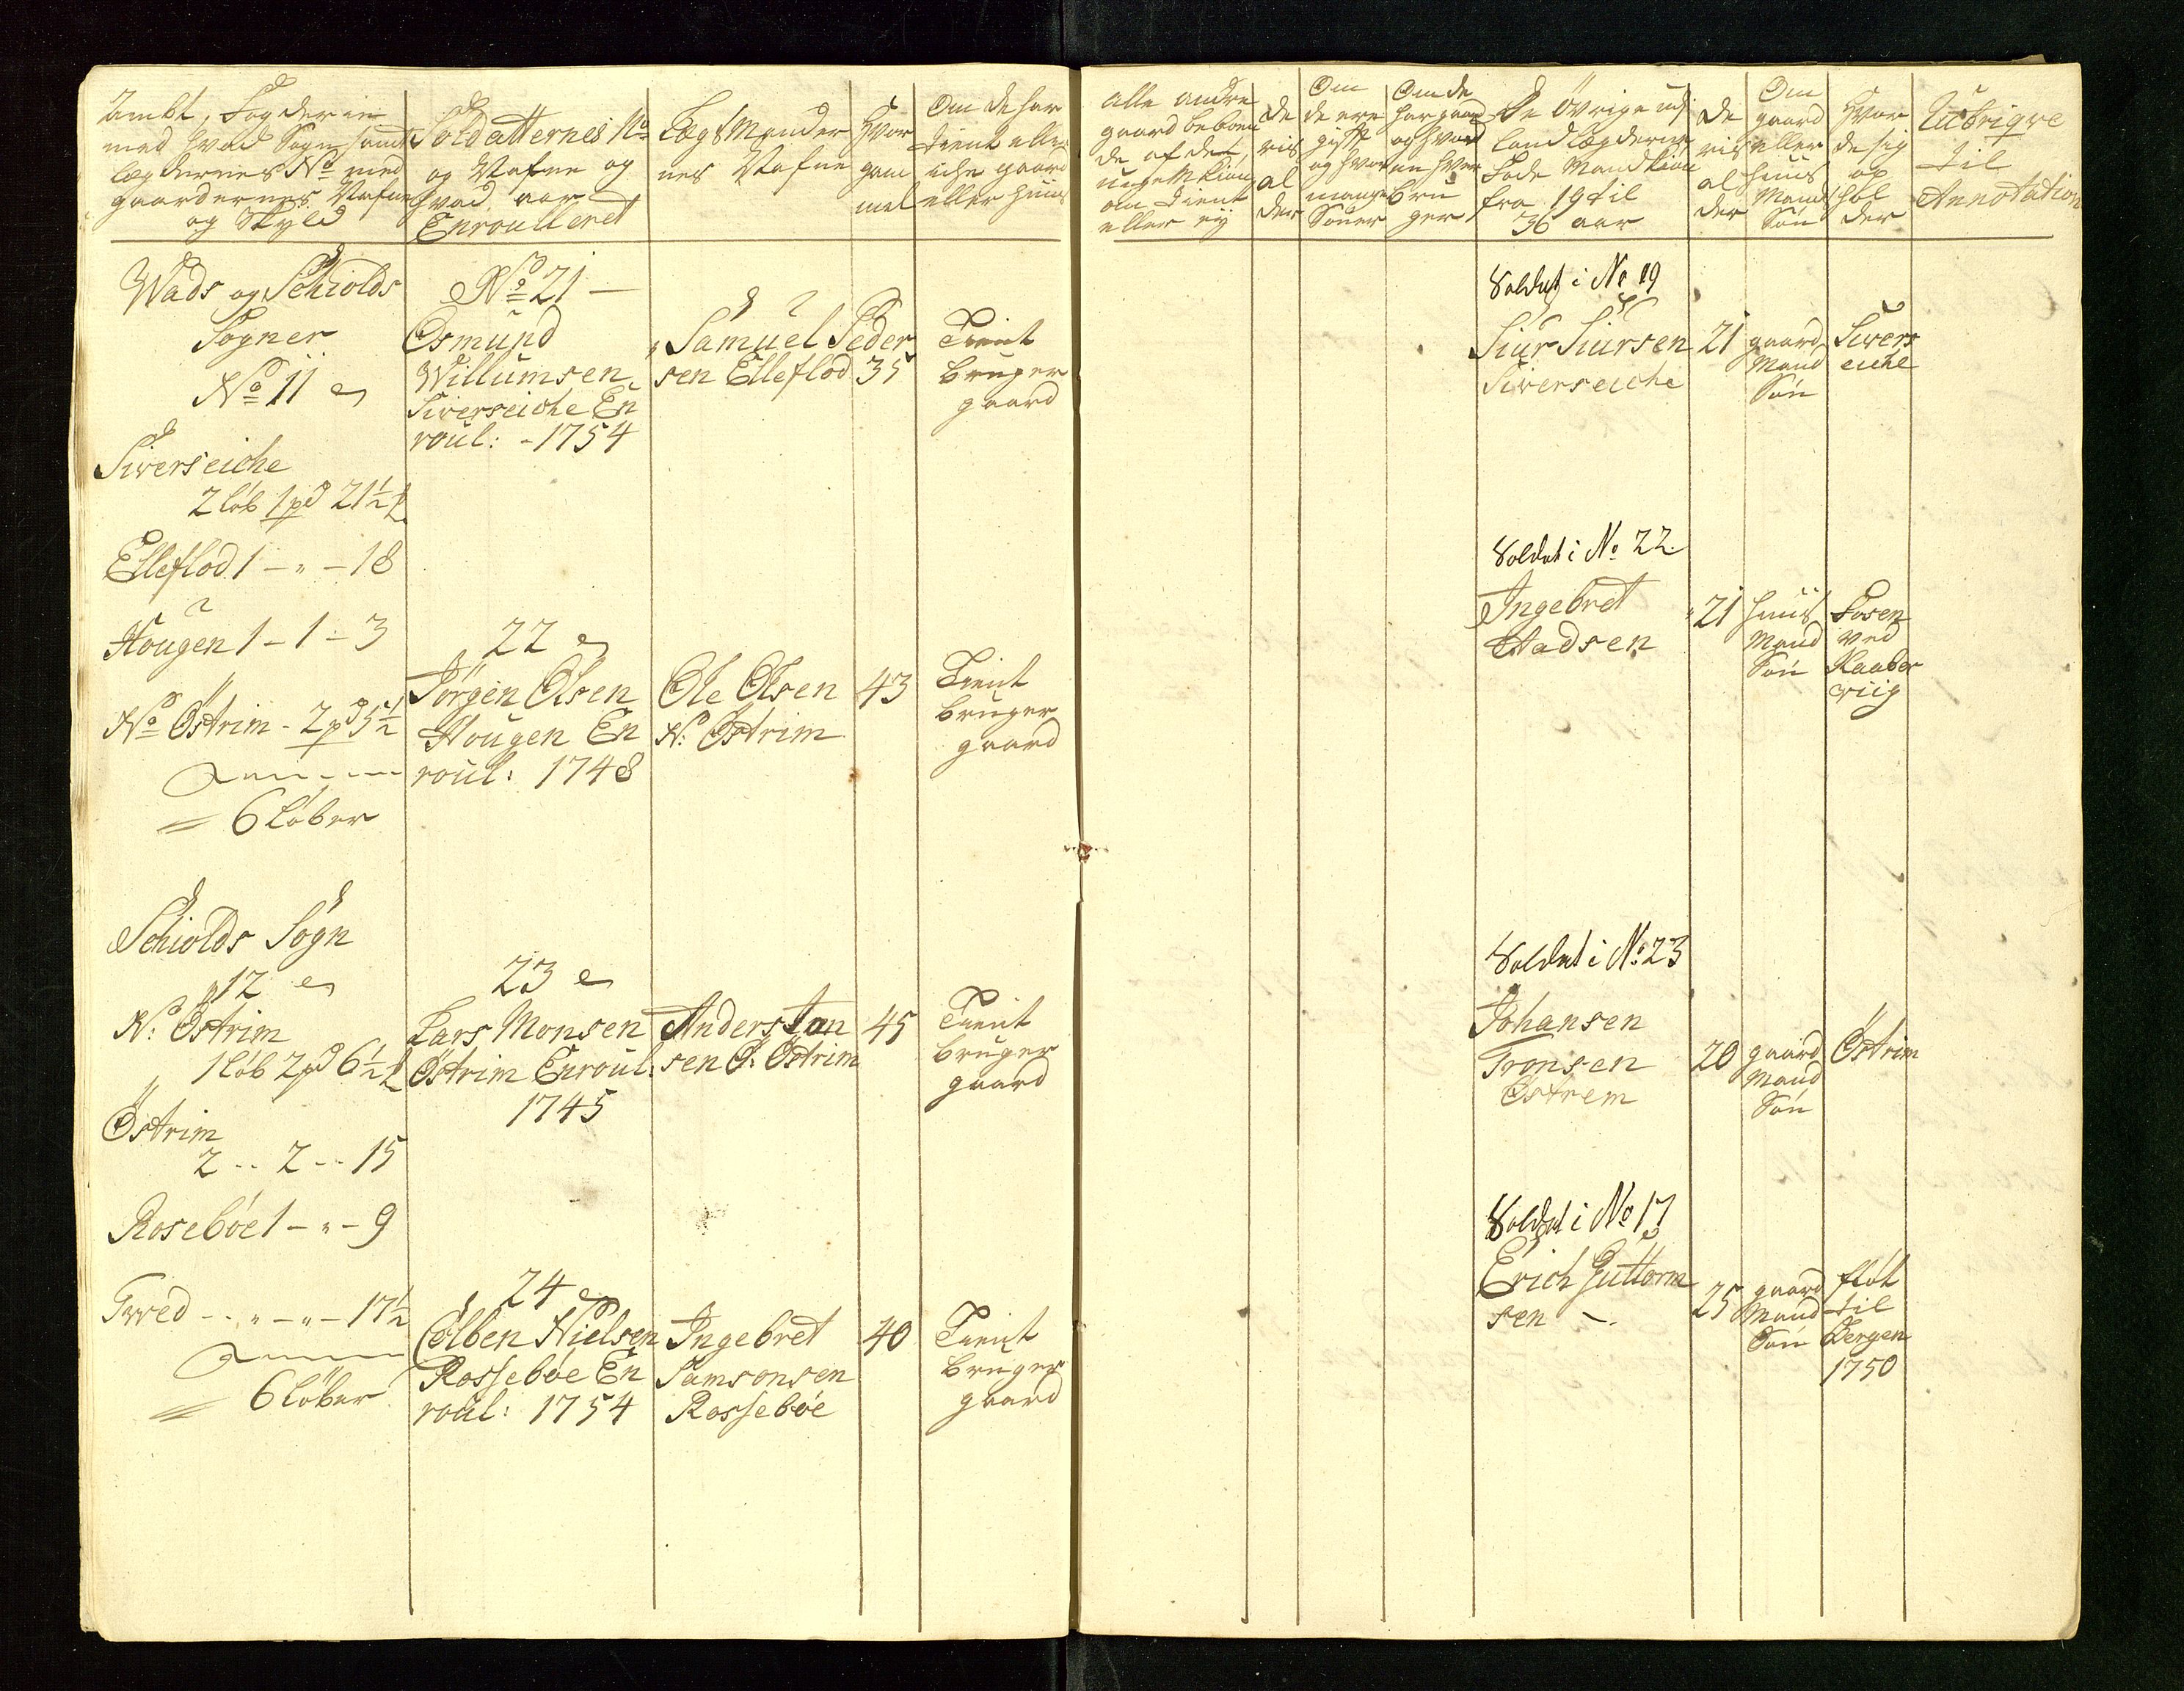 Ambt, Fogderie
med hvad Sogn samt
lægdernes No med
gaardernes Nafne
og Skyld
Soldatternes No
og Nafne og
hvad aar
Enroulleret
Lægs Mænder
nes Nafne
Hvor
gam
mel
Om de har
tient eller
iche gaard
eller huus
Alle andre
gaard beboen
de af det
unge Mkiön
om tient
eller ej
De
ris
al
der
Om
de ere
gift
og hvor
mange
Sönner
Om de
har gaard
og hvad
en hver
bru
ger
De övrige udj
land lægderne
Föde Mandkiön
fra 19 til
36 aar
De
ris
al
der
Om
gaard
eller
huus
Mands
Sön
Hvor
de sig
op
hol
der
Rubriqve
til
Annotation
Wads og Schiolds
Sogner
No 11
Siverseiche
2 löb 1 pd 21½ l
Elleflod 1 - „ - 18
Hougen 1 - 1 - 3
No Östrim - 2 pd 5½
6 Löber
No 21 -
Osmund
Willumsen
Siverseiche En
roul: - 1754
Samuel Peder
sen Elleflod
35
Tient
bruger
gaard
Soldat i No 19
Siur Siursen
Siverseiche
21
gaard
Mand
Sön
Sivers
eiche
22
Jörgen Olsen
Hougen En
roul: 1748
Ole Olsen
N: Östrim
43
Tient
bruger
gaard
Soldat i No 22
Ingebret
Hadsen
21
huus
Mand
Sön
Fosen
ved
Raaber
viig
Schiolds Sogn
12
N: Östrim
1 löb 2 pd 6½ l
Östrim
2 - - 2 - - 15
Rosebòe 1 - „ - 9
Tved - - „ - „ - 17½
6 Löber
23
Lars Monsen
Östrim Enroul:
1745
Anders Jan
sen Ö: Östrim
45
Tient
bruger
gaard
Soldat i No 23
Johansen
Tronsen
Östrem
20
gaard
Mand
Sön
Östrim
24
Colben Nielsen
Rossebòe En
roul: 1754
Ingebret
Samsonsen
Rossebòe
40
Tient
bruger
gaard
Soldat i No 17
Erich Guttorm
sen -
25
gaard
Mand
Sön
flöt
til
Bergen
1750